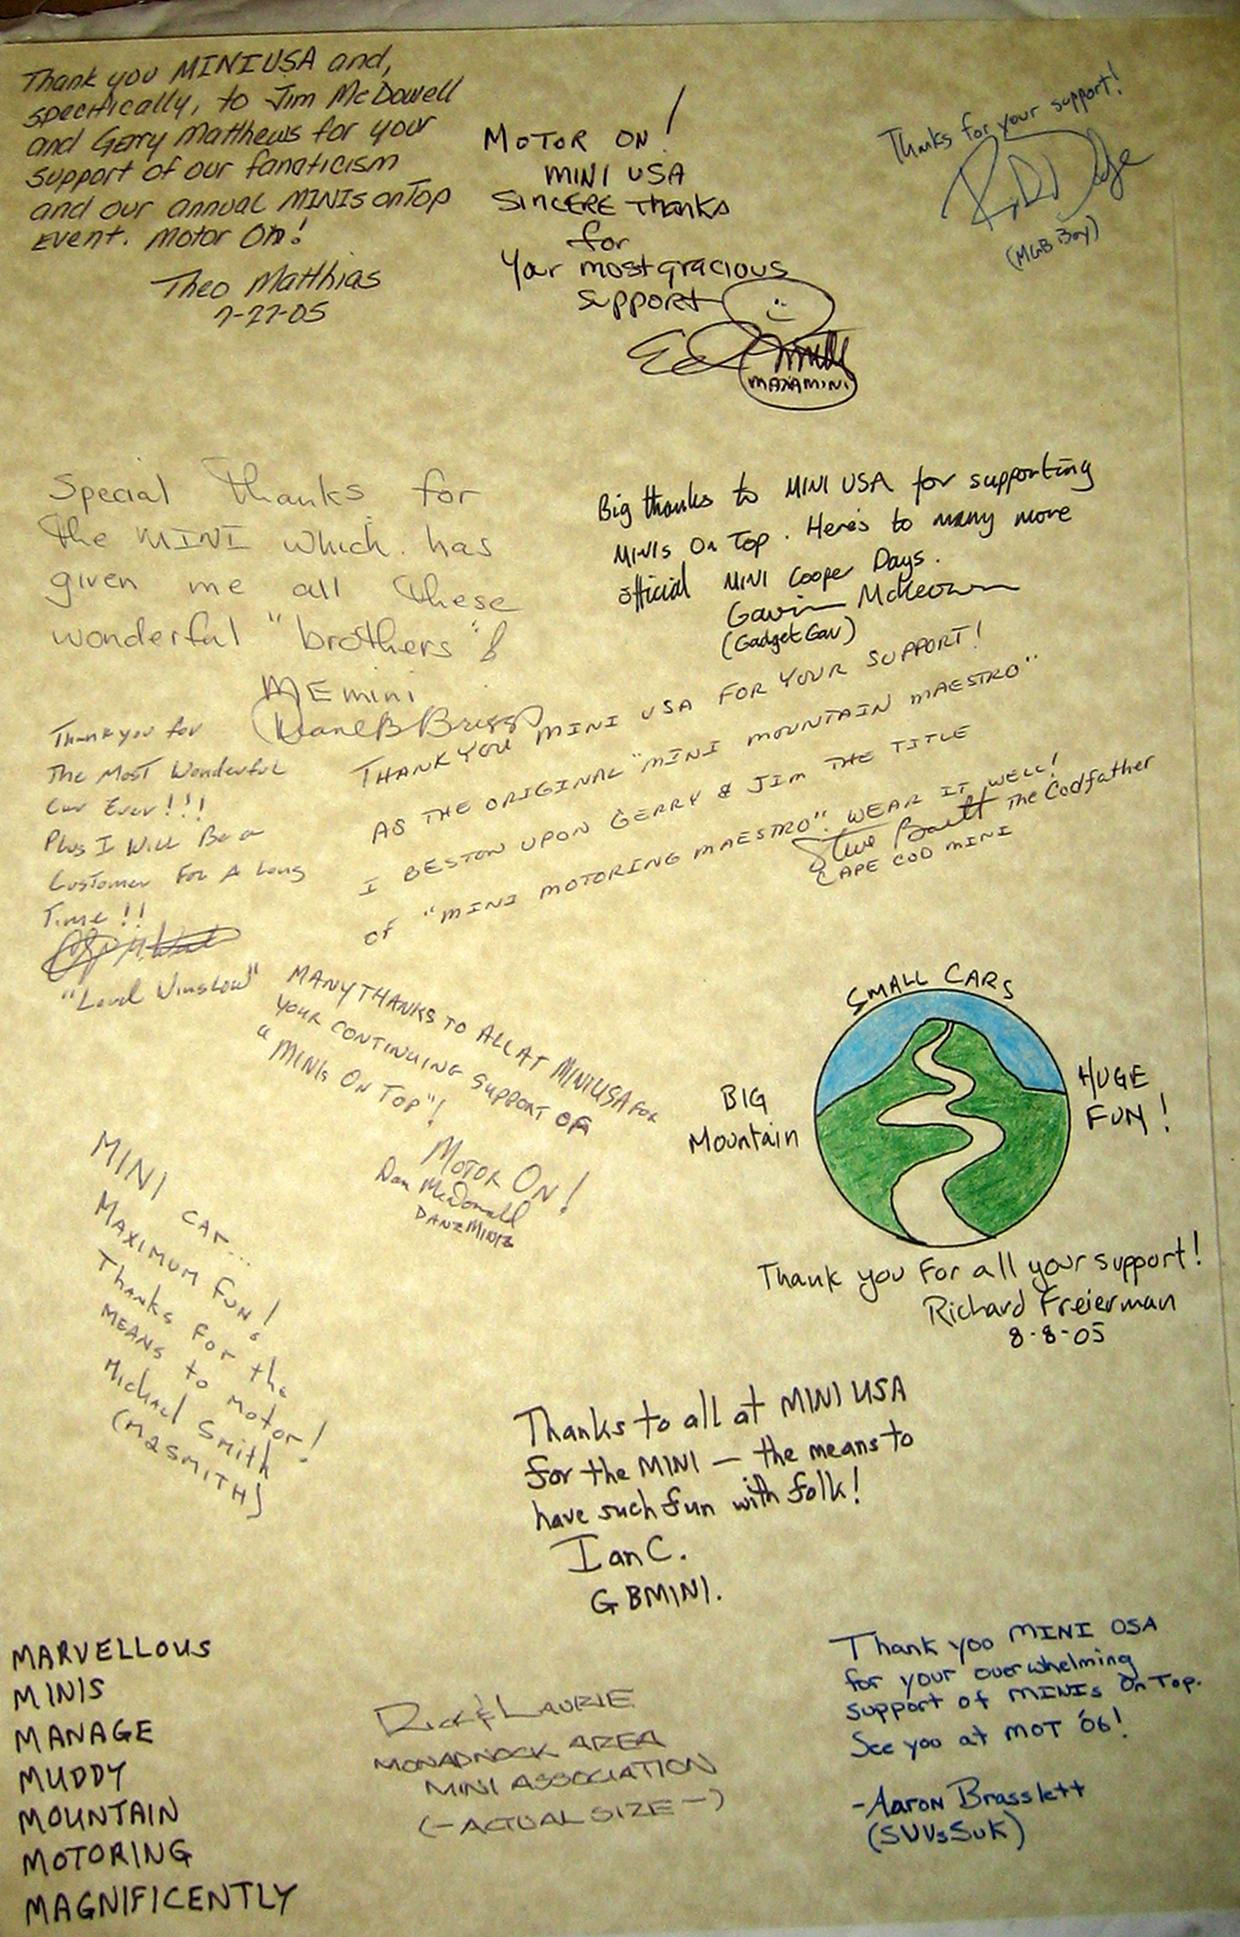 Thank you MINIUSA and,
specifically, to Jim McDowell
and Gerry Matthews for your
support of our fanaticism
and our annual MINIs on Top
Event. Motor On!
Theo Matthias
7-27-05
MOTOR ON!
MINI USA
SINCERE THANKS
for
Your most gracious
support
Ed
MAXAMINI
Thanks for your support!
(MGB Boy)
Special Thanks for
the MINI which has
given me all these
wonderful "brothers"!
MEmini
Diane B Briggs
Big thanks to MINI USA for supporting
MINIs On Top. Here's to many more
official MINI Cooper Days.
Gavin McKeown
(GadgetGav)
Thank you for
The Most Wonderful
Car Ever!!!
Plus I Will Be a
Customer For A Long
Time!!
THANK YOU MINI USA FOR YOUR SUPPORT!
AS THE ORIGINAL "MINI MOUNTAIN MAESTRO"
I BESTOW UPON GERRY & JIM THE TITLE
OF "MINI MOTORING MAESTRO". WEAR IT WELL!
The Codfather
CAPE COD MINI
MANY THANKS TO ALL AT MINIUSA FOR
YOUR CONTINUING SUPPORT OF
"MINIs ON TOP"!
MOTOR ON!
Dan McDonald
DANZMINIZ
SMALL CARS
BIG
Mountain
HUGE
FUN!
Thank you for all your support!
Richard Freierman
8-8-05
MINI CAR...
MAXIMUM FUN!
Thanks for the
MEANS to motor!
Michael Smith
(M2SMITH)
Thanks to all at MINI USA
for the MINI — the means to
have such fun with folk!
Ian C.
GBMINI.
MARVELLOUS
MINIS
MANAGE
MUDDY
MOUNTAIN
MOTORING
MAGNIFICENTLY
RICK & LAURIE
MONADNOCK AREA
MINI ASSOCIATION
(-ACTUAL SIZE-)
Thank you MINI USA
for your overwhelming
support of MINIs On Top.
See you at MOT '06!
-Aaron Brasslett
(SUVsSuk)